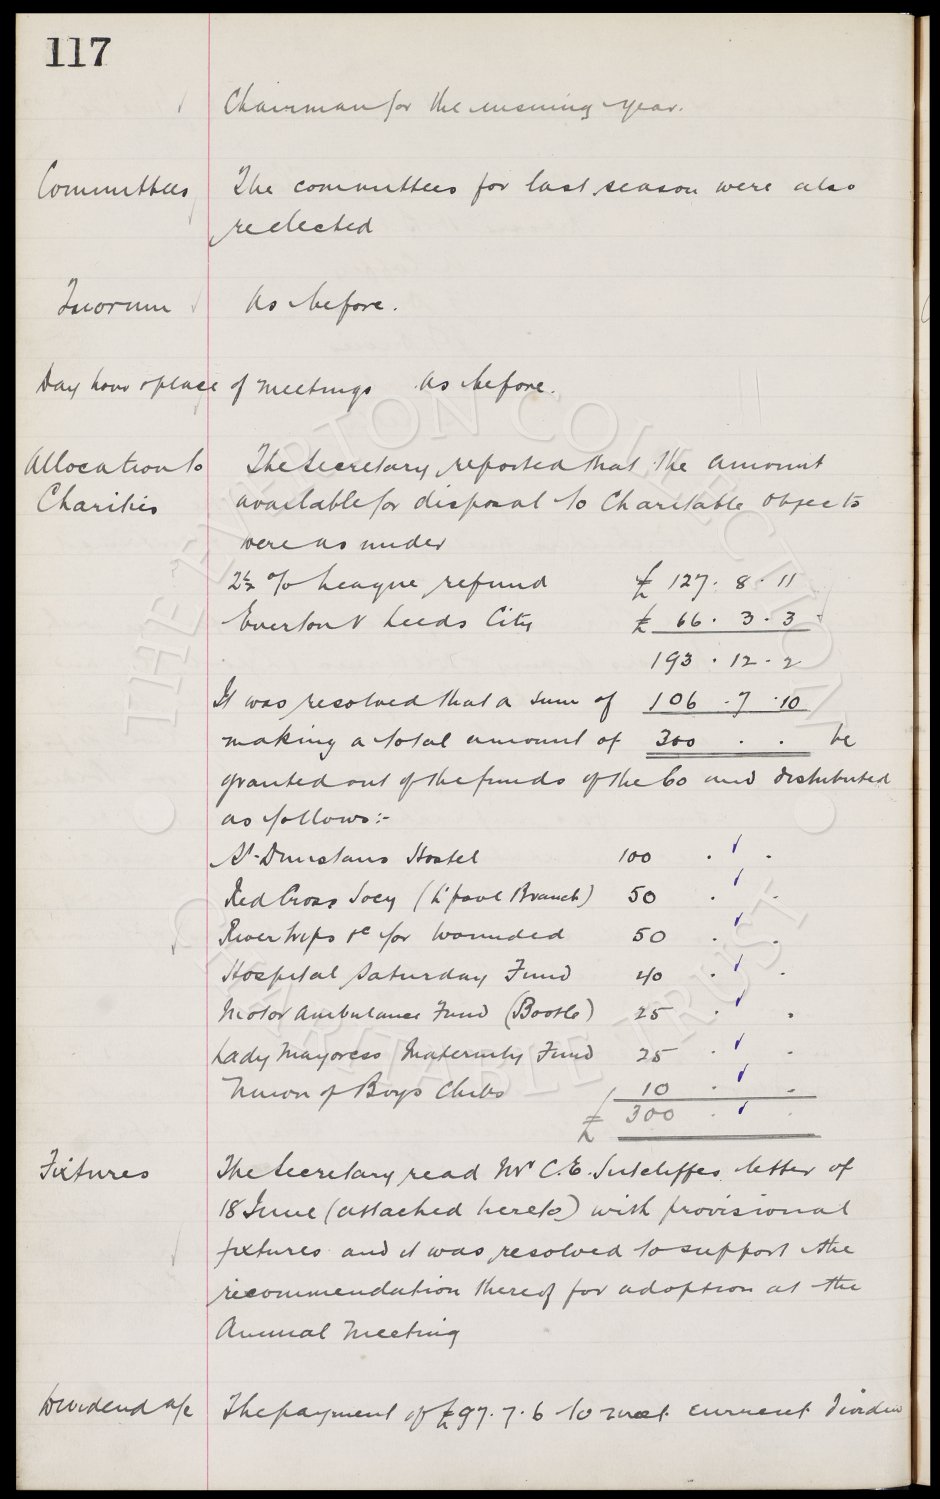 117
Chairman for the ensuing year.
Committees The committees for last season were also
reelected
Quorum As before.
Day hour & place of meetings As before.
Allocation to The Secretary reported that the amount
Charities available for disposal to Charitable Objects
were as under
2½ % League refund £ 127 . 8 . 11
Everton v Leeds City £ 66 . 3 . 3
193 . 12 . 2
It was resolved that a sum of 106 . 7 . 10
making a total amount of 300 . . be
granted out of the funds of the Co and distributed
as follows:-
St. Dunstans Hostel 100 . .
Red Cross Socy (L'pool Branch) 50 . .
River trips &c for wounded 50 . .
Hospital Saturday Fund 40 . .
Motor Ambulance Fund (Bootle) 25 . .
Lady Mayoress Maternity Fund 25 . .
Union of Boys Clubs 10 . .
£ 300 . .
Fixtures The Secretary read Mr C.E. Sutcliffes letter of
18 June (attached hereto) with provisional
fixtures and it was resolved to support the
recommendation thereof for adoption at the
Annual Meeting
Dividend a/c The payment of £97.7.6 to meet current Dividen
THE EVERTON COLLECTION
CHARITABLE TRUST